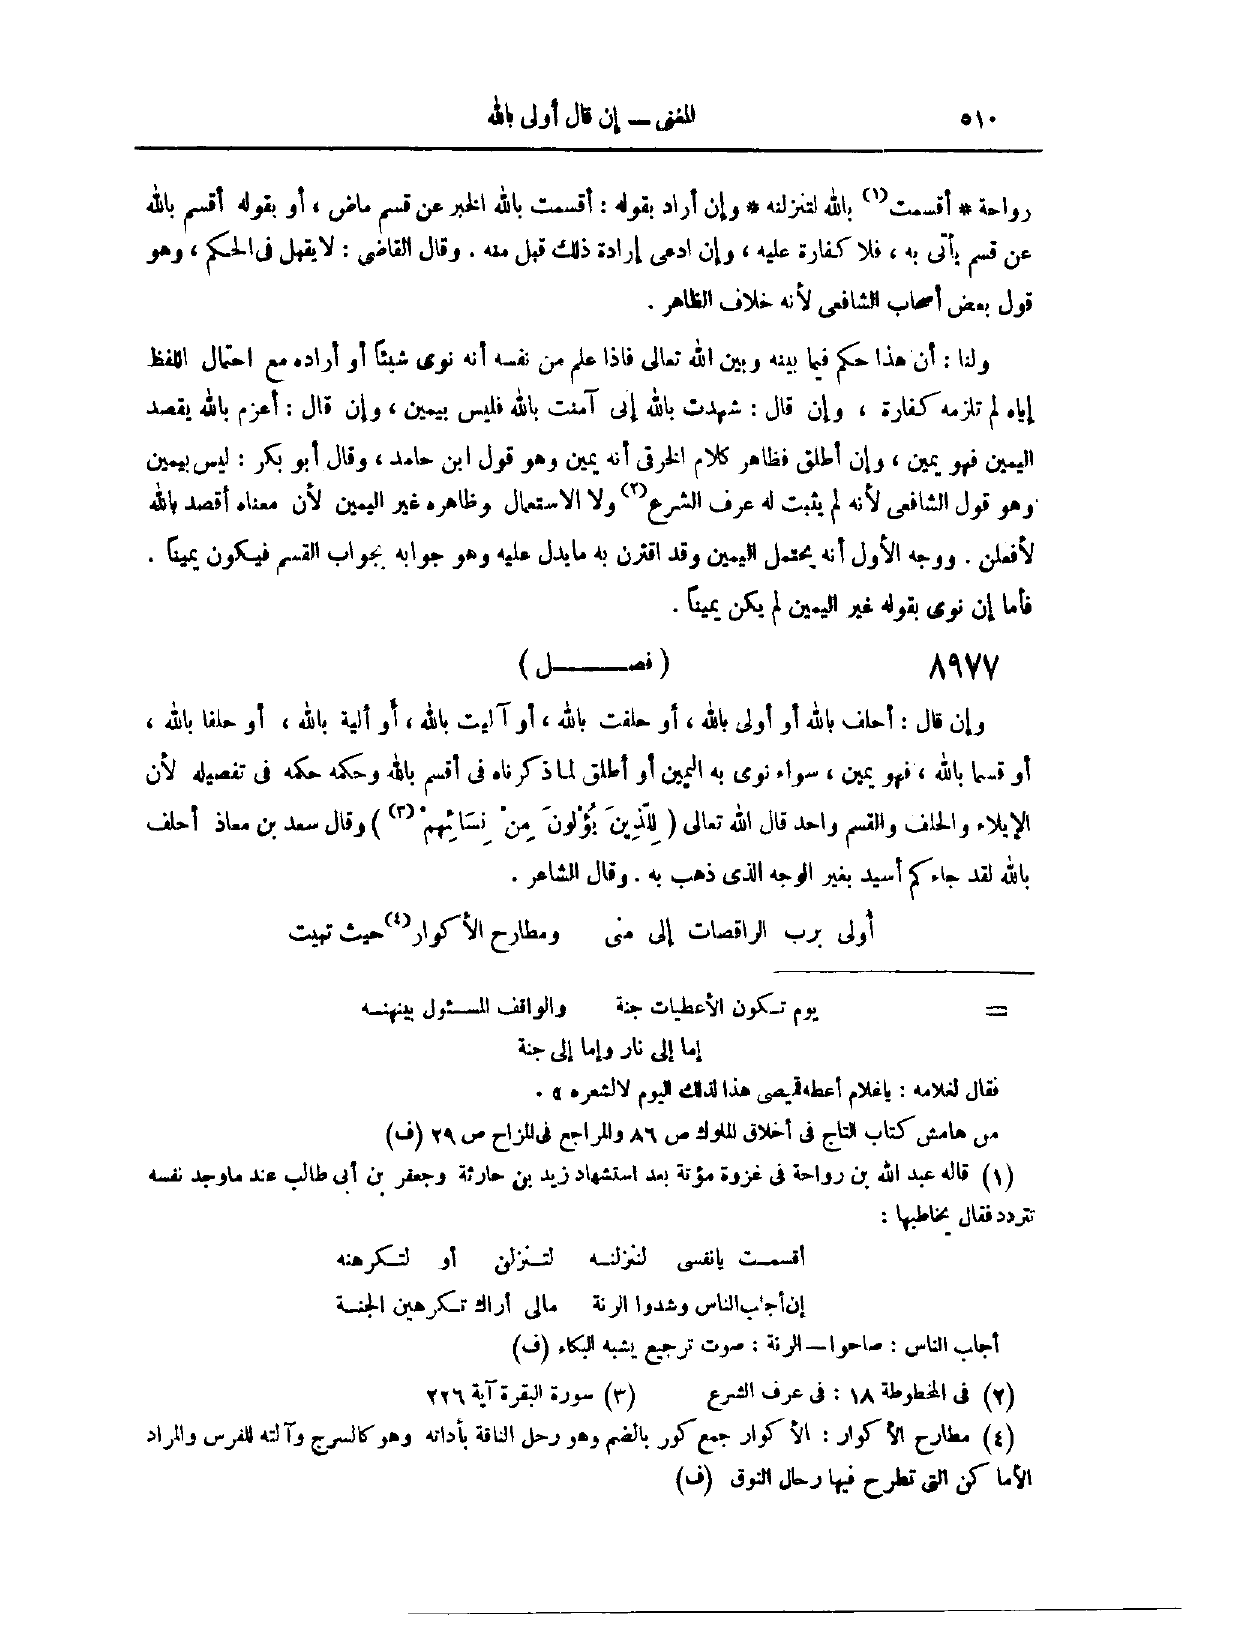 ٥١٠ المغنى — إن قال أولى بالله
رواحة * أقسمت(١) بالله لتنزلنه * وإن أراد بقوله : أقسمت بالله الخبر عن قسم ماض ، أو بقوله أقسم بالله
عن قسم يأتى به ، فلا كفارة عليه ، وإن ادعى إرادة ذلك قبل منه . وقال القاضى : لا يقبل فى الحكم ، وهو
قول بعض أصحاب الشافعى لأنه خلاف الظاهر .
ولنا : أن هذا حكم فيما بينه وبين الله تعالى فاذا علم من نفسه أنه نوى شيئاً أو أراده مع احتمال اللفظ
إياه لم تلزمه كفارة ، وإن قال : شهدت بالله إنى آمنت بالله فليس بيمين ، وإن قال : أعزم بالله يقصد
اليمين فهو يمين ، وإن أطلق فظاهر كلام الخرقى أنه يمين وهو قول ابن حامد ، وقال أبو بكر : ليس بيمين
وهو قول الشافعى لأنه لم يثبت له عرف الشرع(٢) ولا الاستعمال وظاهره غير اليمين لأن معناه أقصد بالله
لأفعلن . ووجه الأول أنه يحتمل اليمين وقد اقترن به مايدل عليه وهو جوابه بجواب القسم فيكون يميناً .
فأما إن نوى بقوله غير اليمين لم يكن يميناً .
٨٩٧٧ ( فصــــــل )
وإن قال : أحلف بالله أو أولى بالله ، أو حلفت بالله ، أو آليت بالله ، أو ألية بالله ، أو حلفا بالله ،
أو قسما بالله ، فهو يمين ، سواء نوى به اليمين أو أطلق لما ذكرناه فى أقسم بالله وحكمه حكمه فى تفصيله لأن
الإيلاء والحلف والقسم واحد قال الله تعالى ( لِلَّذِينَ يُؤْلُونَ مِنْ نِسَائِهِمْ(٣) ) وقال سعد بن معاذ أحلف
بالله لقد جاءكم أسيد بغير الوجه الذى ذهب به . وقال الشاعر .
أولى برب الراقصات إلى منى ومطارح الأكوار(٤) حيث تهيت
= يوم تكون الأعطيات جنة والواقف المسئول بينهنه
إما إلى نار وإما إلى جنة
فقال لغلامه : ياغلام أعطه قميصى هذا لذلك اليوم لا لشعره » .
من هامش كتاب التاج فى أخلاق الملوك ص ٨٦ والمراجع فى المزاح ص ٢٩ (ف)
(١) قاله عبد الله بن رواحة فى غزوة مؤتة بعد استشهاد زيد بن حارثة وجعفر بن أبى طالب عند ماوجد نفسه
تتردد فقال يخاطبها :
أقسمت يانفسى لتنزلنه لتنزلن أو لتكرهنه
إن أجلب الناس وشدوا الرنة مالى أراك تكرهين الجنة
أجاب الناس : صاحوا — الرنة : صوت ترجيع يشبه البكاء (ف)
(٢) فى المخطوطة ١٨ : فى عرف الشرع (٣) سورة البقرة آية ٢٢٦
(٤) مطارح الأكوار : الأكوار جمع كور بالضم وهو رحل الناقة بأداته وهو كالسرج وآلته للفرس والمراد
الأماكن التى تطرح فيها رحال النوق (ف)